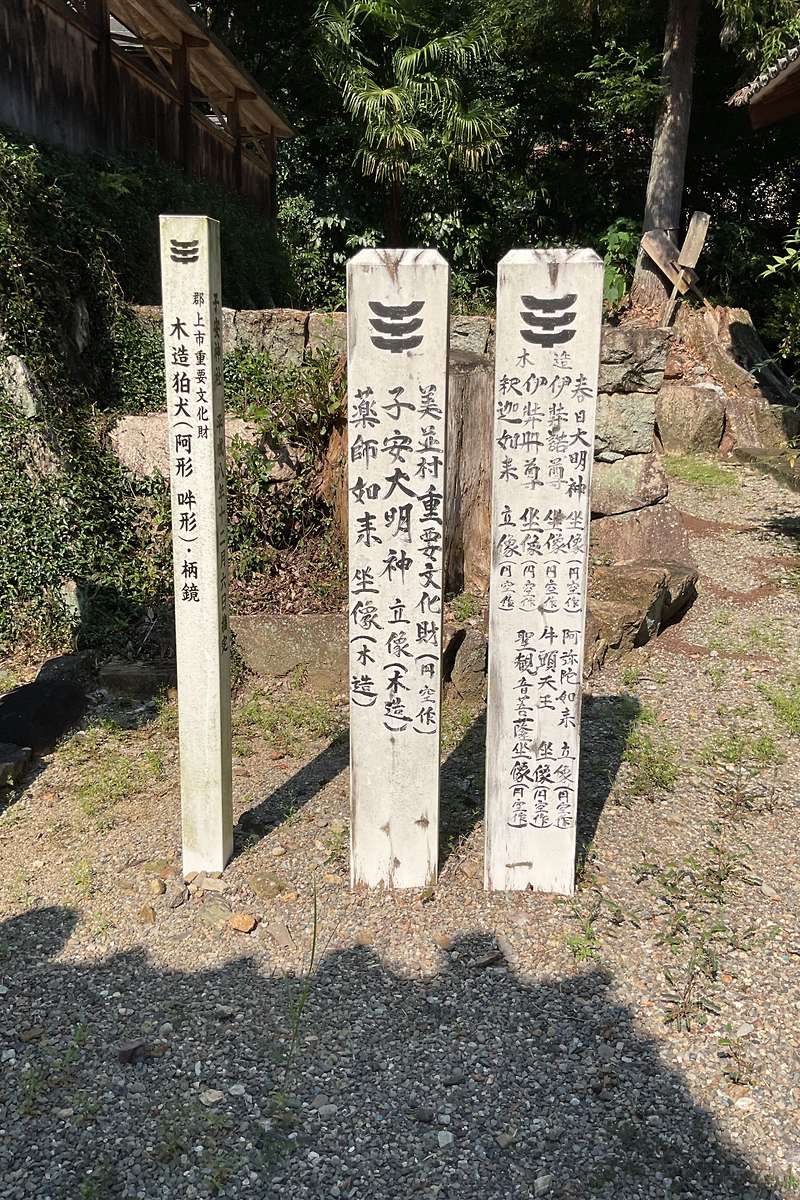 郡上市重要文化財
木造狛犬（阿形 吽形）・柄鏡
美並村重要文化財（円空作）
子安大明神 立像（木造）
薬師如来 坐像（木造）
木造
春日大明神 坐像（円空作）
伊弉諾尊 坐像（円空作）
伊弉冊尊 坐像（円空作）
釈迦如来 立像（円空作）
阿弥陀如来 立像（円空作）
牛頭天王 坐像（円空作）
聖観音菩薩 坐像（円空作）